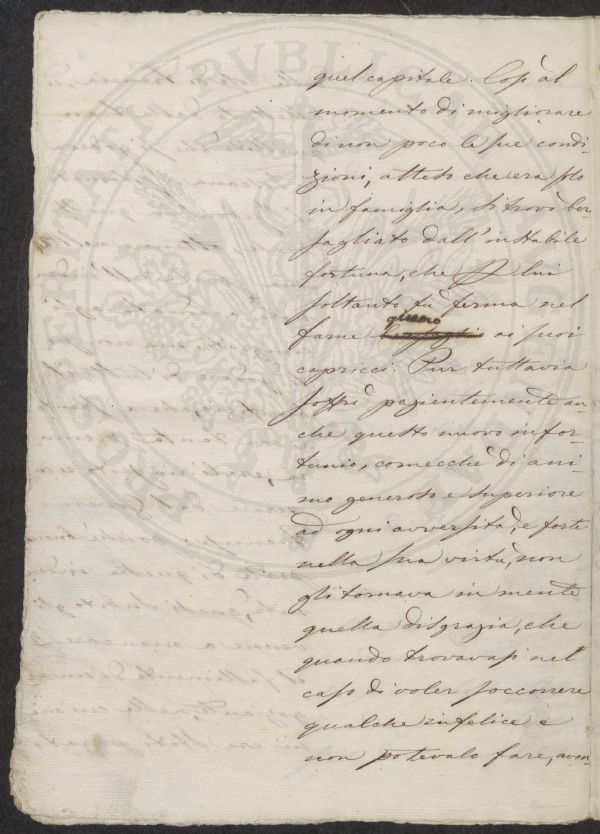 quel capitale. Così al
momento di migliorare
di non poco le sue condi-
zioni, atteso che era solo
in famiglia, si trovò ber-
sagliato dall'instabile
fortuna, che p lui
soltanto fu ferma nel
farne giuoco ai suoi
capricci. Pur tuttavia
soffrì pazientemente an-
che questo nuovo infor-
tunio, comecchè di ani-
mo generoso e superiore
ad ogni avversità, e forte
nella sua virtù, non
gli tornava in mente
quella disgrazia, che
quando trovavasi nel
caso di voler soccorrere
qualche infelice e
non potevalo fare, aven-